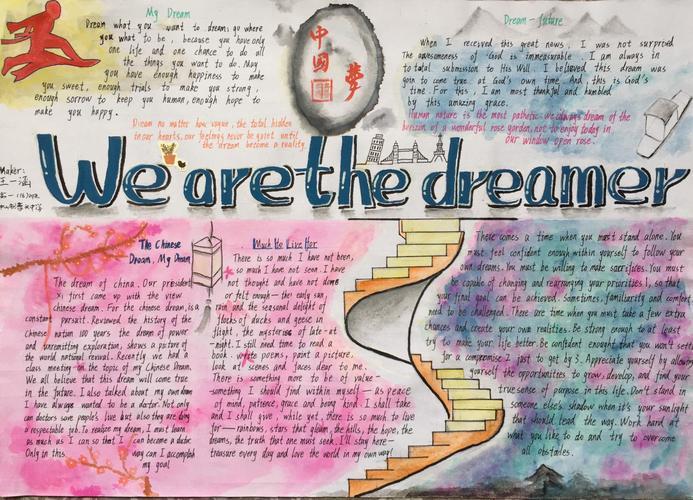 My Dream
Dream what you want to dream; go where
you what to be, because you have only
one life and one chance to do all
the things you want to do. May
you have enough happiness to make
you sweet, enough trials to make you strong,
enough sorrow to keep you human, enough hope to
make you happy.
Dream no matter how vague, the total hidden
in our hearts, our feelings never be quiet until
the dream become a reality.
中國
夢
Dream-future
When I received this great news, I was not surprised
The awesomeness of God is immeasurable. I am always in
total submission to His Will. I believed this dream was
goin to come true at God's own time. And, this is God's
time. For this, I am most thankful and humbled
by this amazing grace.
Human nature is the most pathetic: we always dream of the
horizon of a wonderful rose garden, not to enjoy today in
our window open rose.
We are the dreamer
Maker:
王一涵
The Chinese
Dream, My Dream
The dream of china. Our president
Xi first came up with the view
Chinese dream. For the chinese, dream is a
constant pursuit. Reviewed the history of the
Chinese nation 100 years the dream of power
and unremitting exploration, shows a picture of
the world national revival. Recently we had a
class meeting on the topic of my Chinese Dream.
We all believe that this dream will come true
in the future. I also talked about my own dream
I have always wanted to be a doctor. Not only
can doctors save people's live but also they are doing
a respectable job. To realize my dream, I must learn
as much as I can so that I can become a doctor.
Only in this way can I accomplish
my goal
Much to Live For
There is so much I have not been,
so much I have not seen. I have
not thought and have not done
or felt enough - the early sun,
rain and the seasonal delight of
flocks of ducks and geese in
flight, the mysteries of late-at
-night. I still need time to read a
book, write poems, paint a picture,
look at scenes and faces dear to me.
There is something more to be of value -
something I should find within myself - as peace
of mind, patience, grace and being kind. I shall take
and I shall give, while yet, there is so much to live
for - rainbows, stars that gleam, the hills, the hope, the
dreams, the truth that one must seek. I'll stay here -
treasure every day and love the world in my own way!
There comes a time when you must stand alone. You
must feel confident enough within yourself to follow your
own dreams. You must be willing to make sacrifices. You must
be capable of changing and rearranging your priorities I, so that
your final goal can be achieved. Sometimes, familiarity and comfort
need to be challenged. There are time when you must take a few extra
chances and create your own realities. Be strong enough to at least
try to make your life better. Be confident enough that you won't settle
for a compromise I just to get by 3. Appreciate yourself by allow
yourself the opportunities to grow, develop, and find your
true sense of purpose in this life. Don't stand in
someone else's shadow when it's your sunlight
that should lead the way. Work hard at
what you like to do and try to overcome
all obstacles.